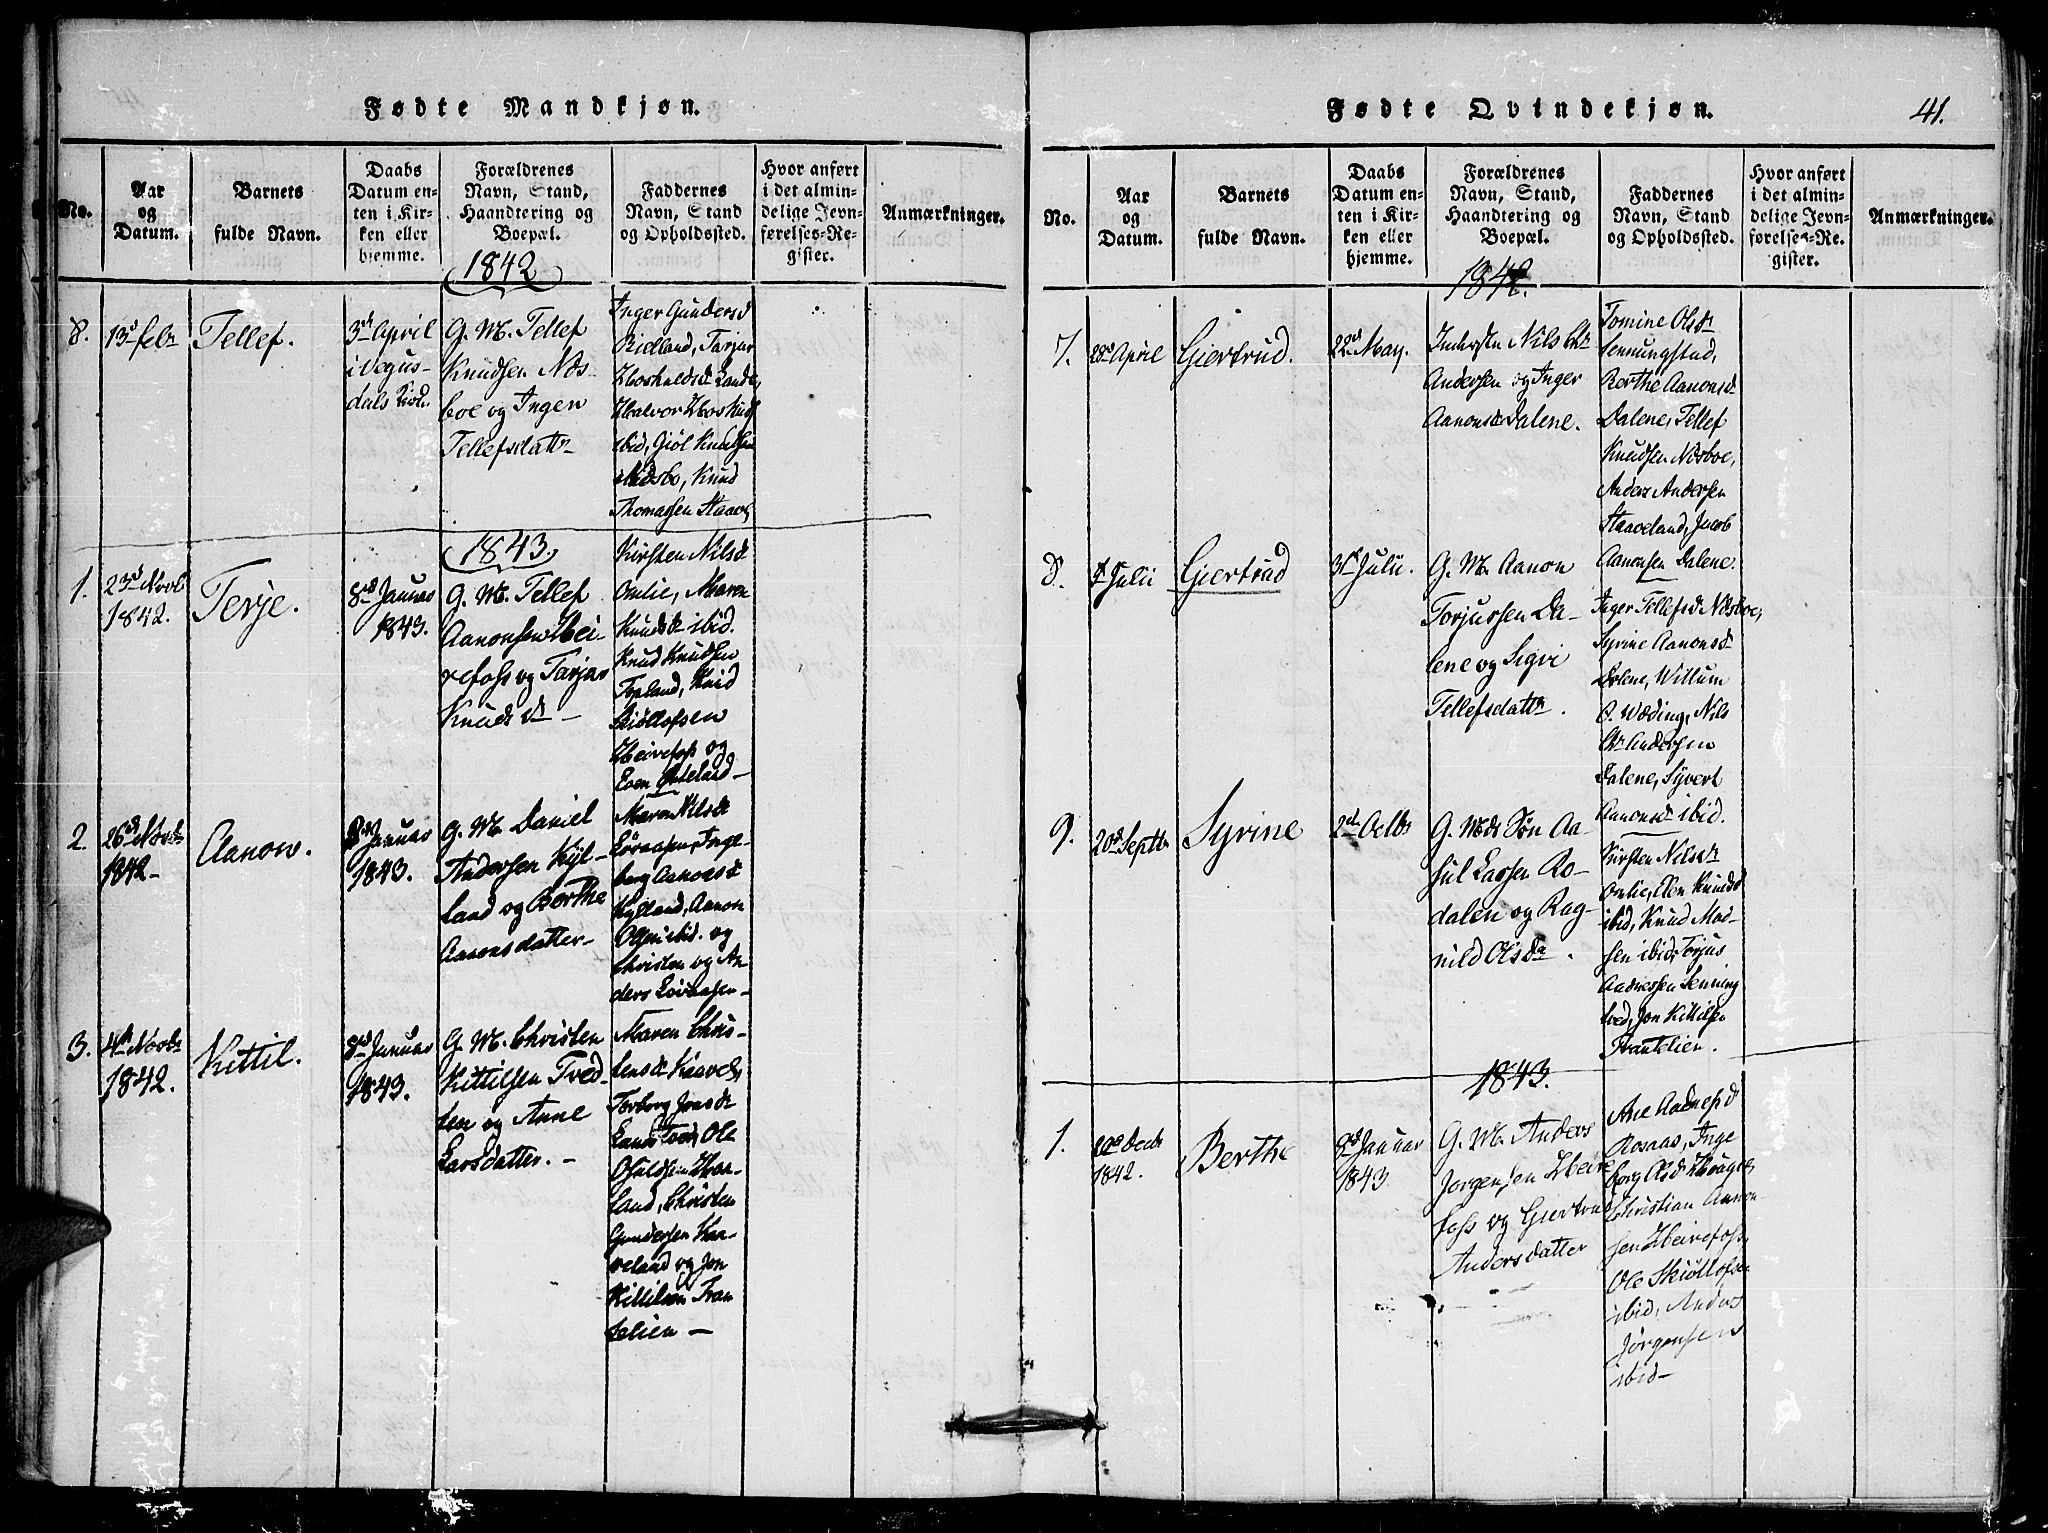 Fødte Mandkjøn.
No.
Aar
og
Datum.
Barnets
fulde Navn.
Daabs
Datum en-
ten i Kir-
ken eller
hjemme.
Forældrenes
Navn, Stand,
Haandtering og
Boepæl.
Faddernes
Navn, Stand
og Opholdssted.
Hvor anført
i det almin-
delige Jevn-
førelses-Re-
gister.
Anmærkninger.
1842
8.
13d febr
Tellef.
3d April
i Vegus-
dals Kirke
G. M. Tellef
Knudsen Næs-
boe og Ingen
Tellefsdattr
Inger Gundersd
Ridland, Tarjer
Hoskuldsd Lande,
Halvor Hoskuds
ibid, Giöl Knudsen
Næsbo, Knud
Thomassen Staavel
1843.
1.
23d Novbr
1842.
Terje.
8d Januar
1843.
G. M. Tellef
Aanonsen Hei-
refoss og Tarjer
Knudsd -
Kirsten Nilsd
Omlie, Maren
Knudsd ibid.
Knud Knudsen
Topland, Knud
Skiöllofsen
Heirefoss og
Even Öteland -
2.
26d Novbr
1842 -
Aanon.
8d Januar
1843.
G. M. Daniel
Andersen Kyl-
land og Berthe
Aanonsdatter -
Maren Nilsd
Lövaasen, Inge-
borg Aanonsd
Kylland, Aanon
Olsen ibid. og
Christen og An-
ders Lövaasen -
3.
4de Novbr
1842.
Kittil.
8d Januar
1843.
G. M. Christen
Kittilsen Tved-
ten og Anne
Larsdatter. -
Maren Chris-
tensd Kaavel,
Torborg Jonsd
Ole
Osuldsen Haa-
land, Christen
Gundersen Haa-
veland og Jon
Kittilsen Tran
telien -
Fødte Qvindekjøn.
41.
No.
Aar
og
Datum.
Barnets
fulde Navn.
Daabs
Datum en-
ten i Kir-
ken eller
hjemme.
Forældrenes
Navn, Stand,
Haandtering og
Boepæl.
Faddernes
Navn, Stand
og Opholdssted.
Hvor anført
i det almin-
delige Jevn-
førelses-Re-
gister.
Anmærkninger.
1842.
7.
28d April
Giertrud.
22d May.
Inderste Nils Chr
Andersen og Inger
Aanonsd Dalene.
Tomine Olsd
Senningstad,
Berthe Aanonsd
Dalene, Tellef
Knudsen Næsboe,
Anders Andersen
Staaveland, Jacob
Aanonsen Dalene.
8.
Julii
Giertrud
31d Julii.
G. M. Aanon
Torjussen Da-
lene og Sigvi
Tellefsdattr.
Inger Tellefsd Næsboe,
Syrine Aanonsd
Dalene, Willum
O. Wæding, Nils
Chr Andersen
Dalene, Syvert
Aanonsd ibid.
9.
20d Septbr
Syrine
2d Octbr
G. Mds Søn Aa-
sul Larsen Ro-
dalen og Rag-
nild Olsdr.
Kirsten Nilsd
Omlie, Elen Knudsd
ibid, Knud Mad-
sen ibid, Torjus
Aadnessen Senning
sted, Jon Kittilsen
Trantelien.
1843.
1.
Decbr
1842.
Berthe
8d Januar
1843.
G. M. Anders
Jorgensen Heire
foss og Giertrud
Andersdatter
Ane Aadnesd
Rosaas, Inge
borg Olsd
Christian Aanon-
sen Heirefoss,
Ole Skiöllofsen
ibid, Anders
Jörgensen
ibid -